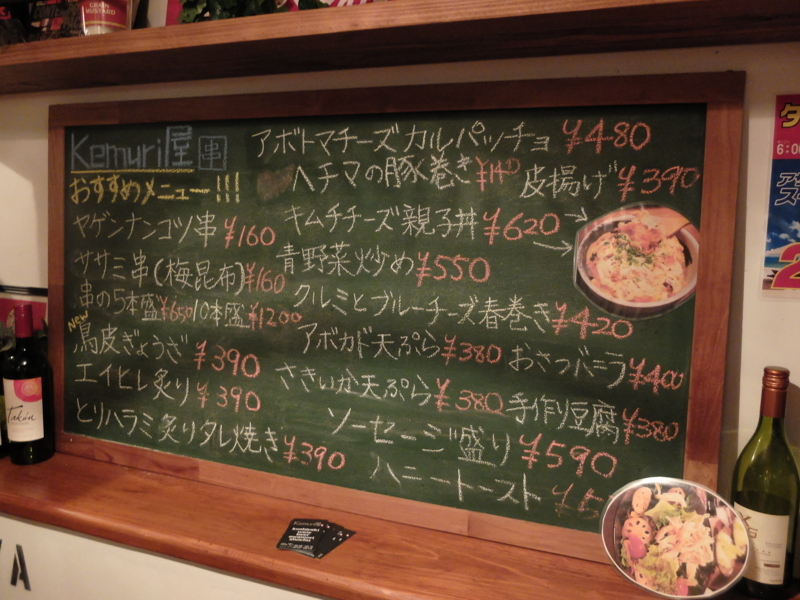 Kemuri屋 串
おすすめメニュー!!!
ヤゲンナンコツ串 ¥160
ササミ串(梅昆布)¥160
串の5本盛¥650 10本盛¥1200
NEW
鳥皮ぎょうざ ¥390
エイヒレ炙り ¥390
とりハラミ炙りタレ焼き ¥390
アボトマチーズカルパッチョ ¥480
ヘチマの豚巻き ¥140 皮揚げ ¥390
キムチチーズ親子丼 ¥620
青野菜炒め ¥550
クルミとブルーチーズ春巻き ¥420
アボカド天ぷら ¥380 おさつバニラ ¥400
さきいか天ぷら ¥380 手作り豆腐 ¥380
ソーセージ盛り ¥590
ハニートースト ¥5
GRAIN
MUSTARD
Takun
Kemuri
6:00